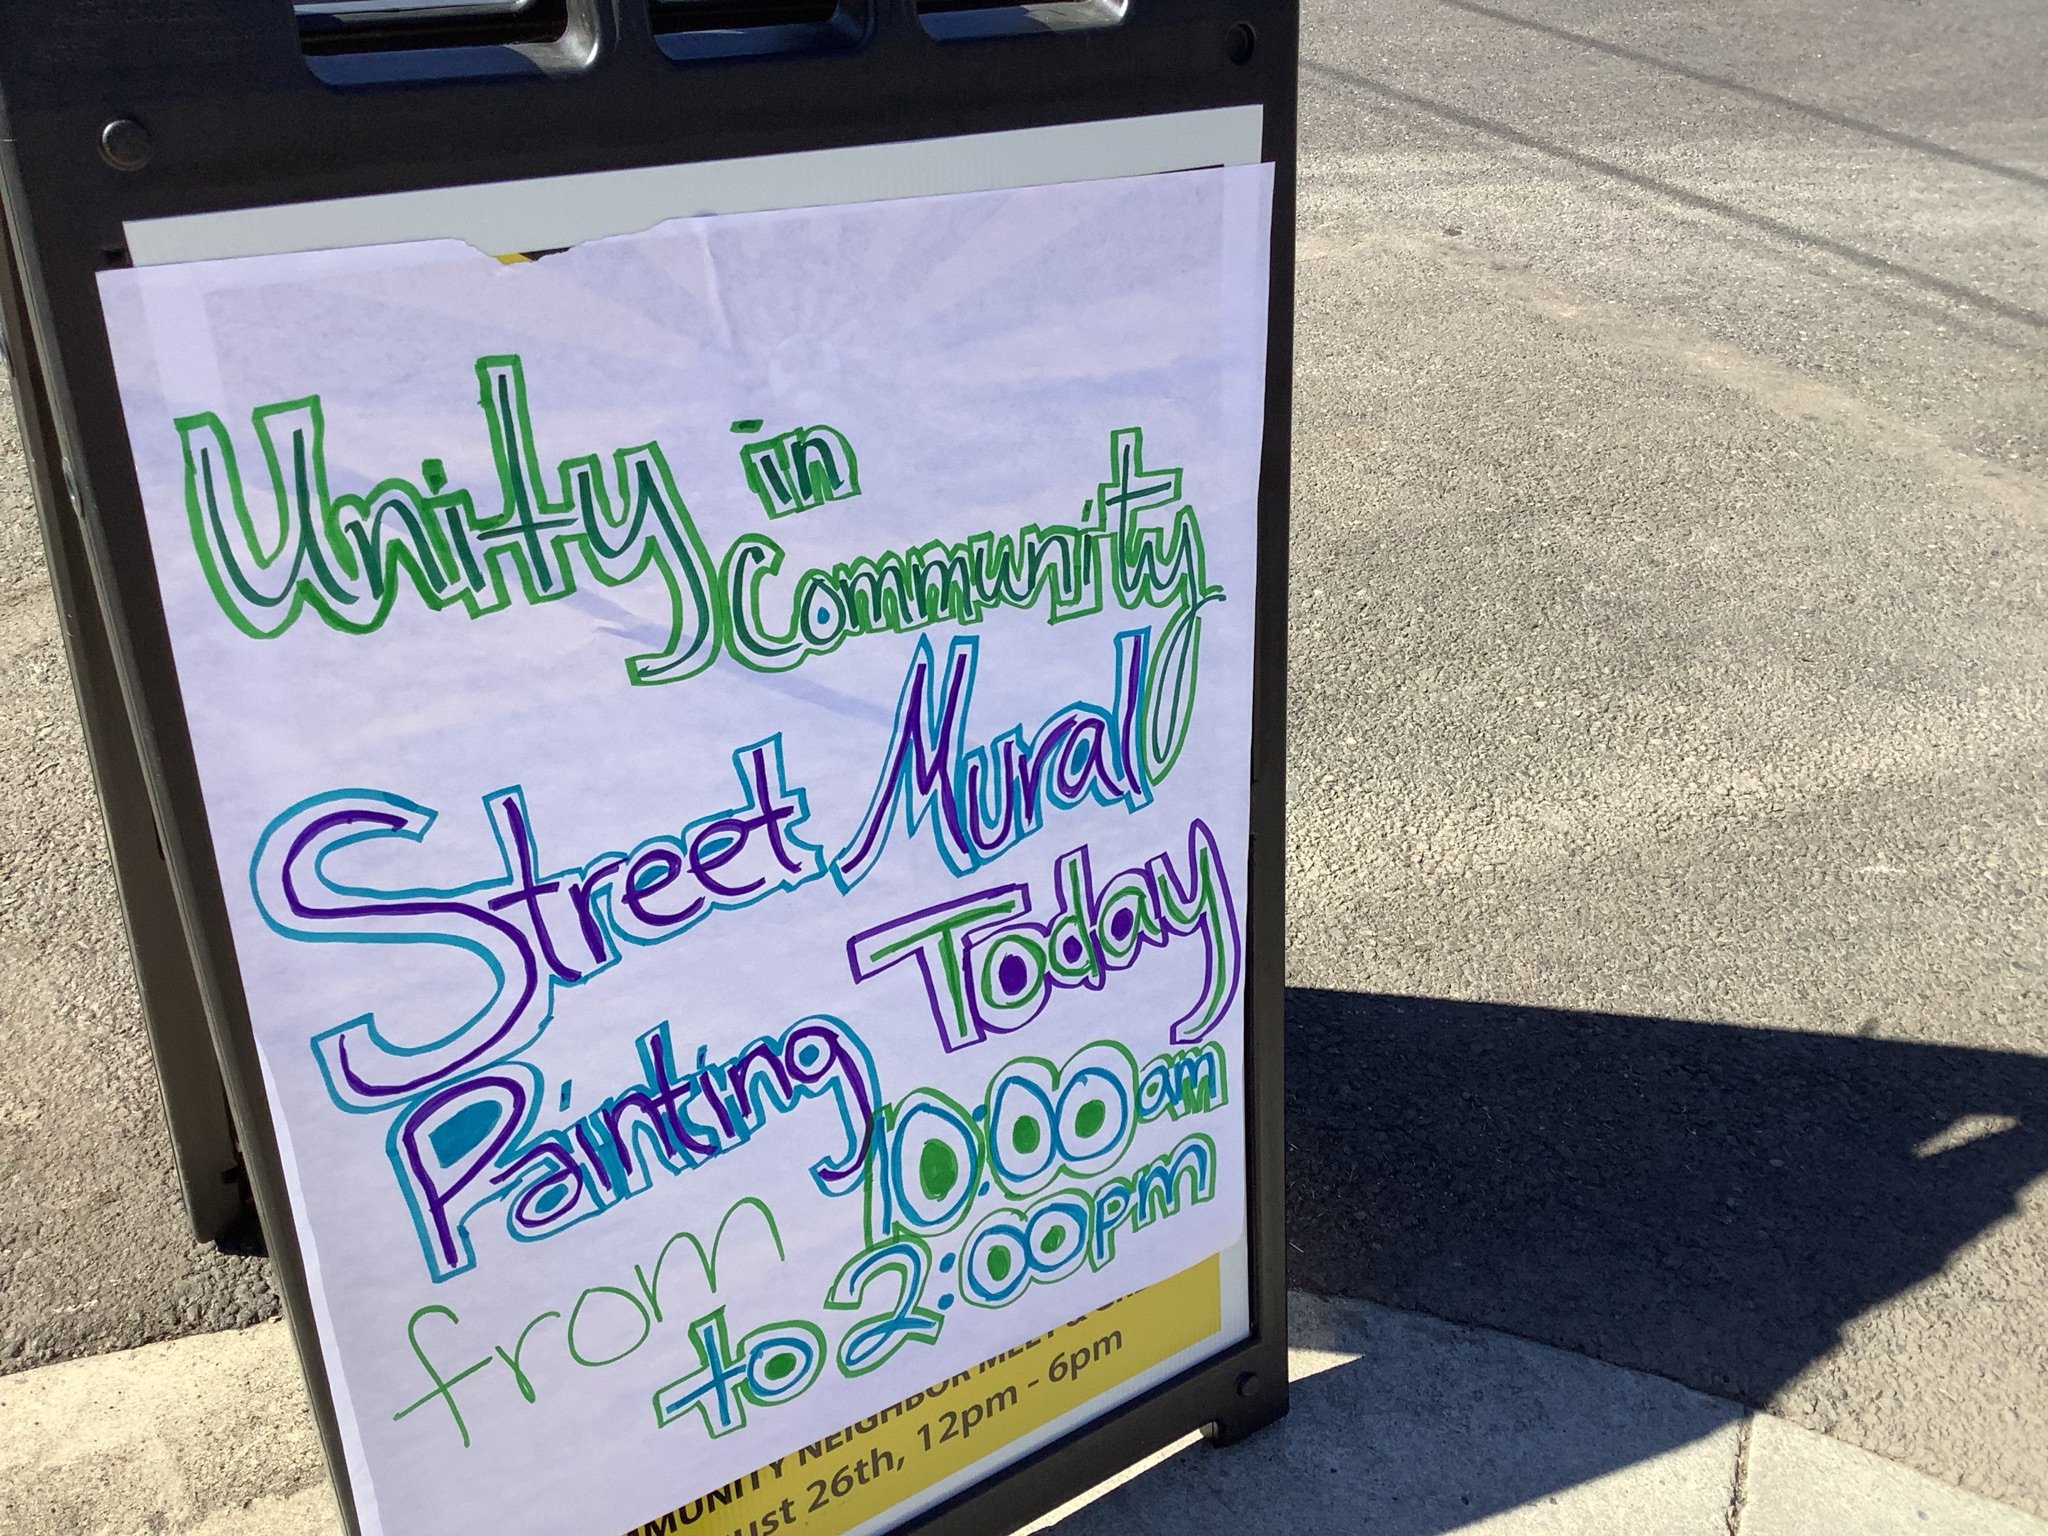 Unity in
Community
Street Mural
Painting Today
from 10:00am
to 2:00pm
NEIGHBOR MEET &
26th, 12pm - 6pm